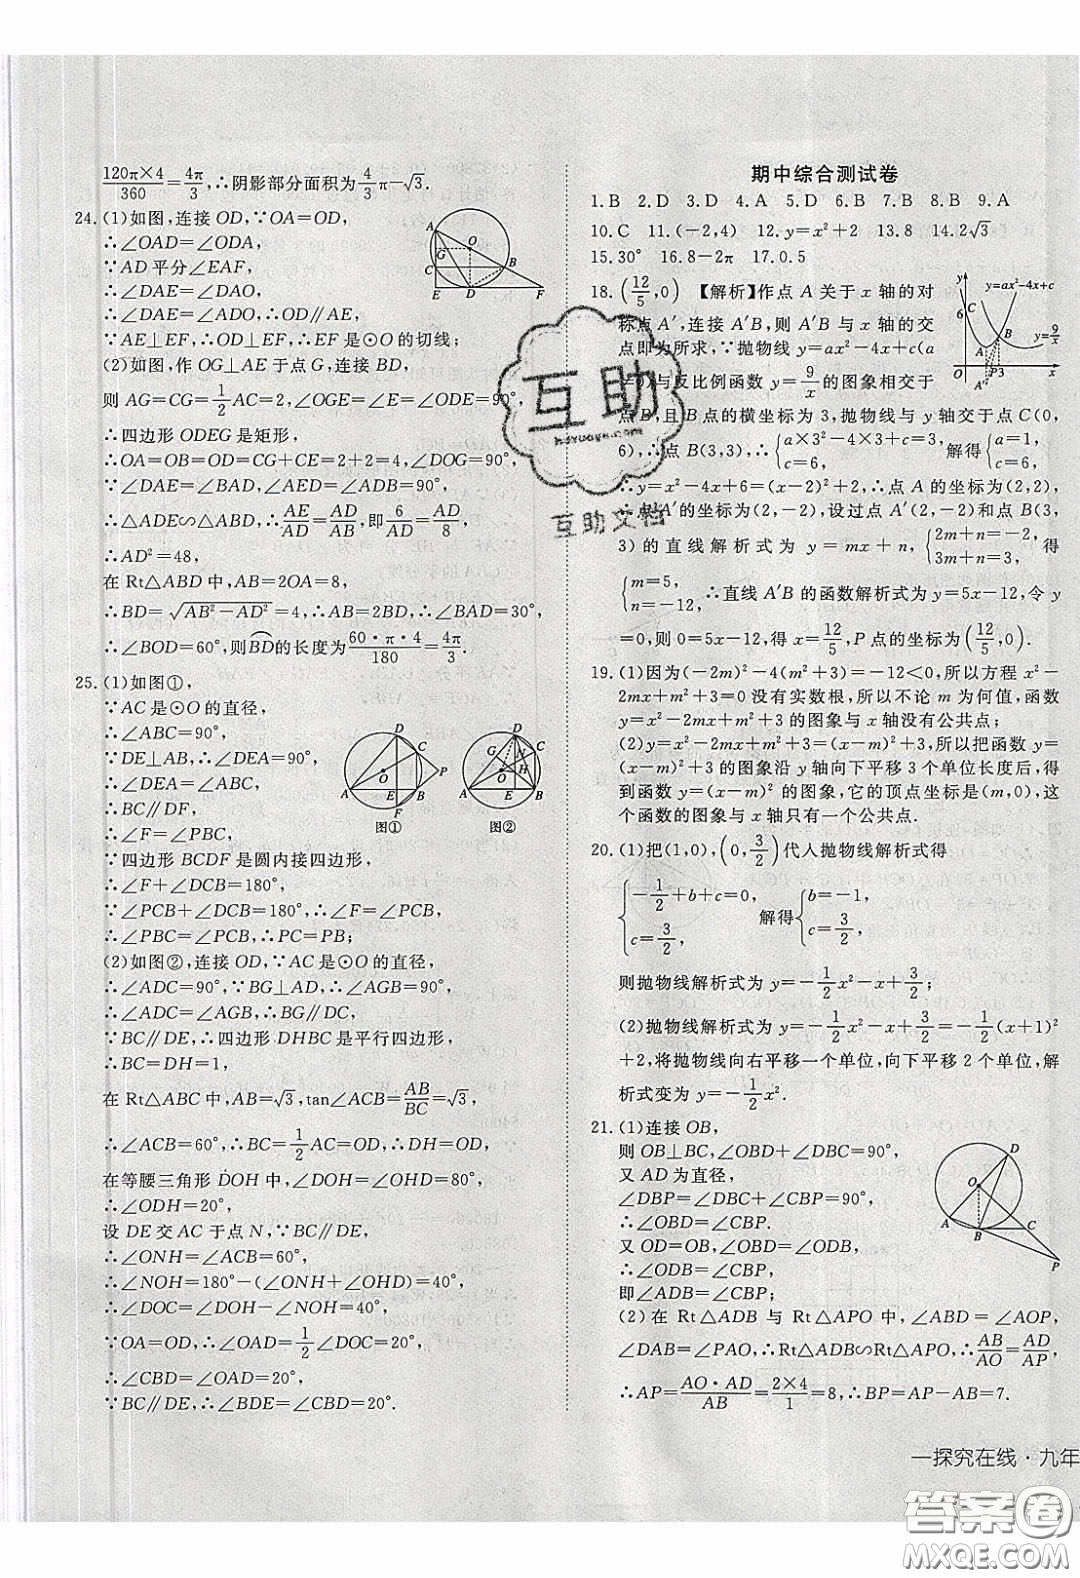 120π×4/360=4π/3,∴阴影部分面积为4/3π-√3.
24.(1)如图,连接OD,∵OA=OD,
∴∠OAD=∠ODA,
∵AD平分∠EAF,
∴∠DAE=∠DAO,
∴∠DAE=∠ADO,∴OD∥AE,
∵AE⊥EF,∴OD⊥EF,∴EF是⊙O的切线;
(2)如图,作OG⊥AE于点G,连接BD,
则AG=CG=1/2AC=2,∠OGE=∠E=∠ODE=90°,
∴四边形ODEG是矩形,
∴OA=OB=OD=CG+CE=2+2=4,∠DOG=90°,
∵∠DAE=∠BAD,∠AED=∠ADB=90°,
∴△ADE∽△ABD,∴AE/AD=AD/AB,即6/AD=AD/8,
∴AD²=48,
在Rt△ABD中,AB=2OA=8,
∴BD=√AB²-AD²=4,∴AB=2BD,∴∠BAD=30°,
∴∠BOD=60°,则BD的长度为60·π·4/180=4π/3.
A
G
O
C
B
E
D
F
25.(1)如图①,
∵AC是⊙O的直径,
∴∠ABC=90°,
∵DE⊥AB,∴∠DEA=90°,
∴∠DEA=∠ABC,
∴BC∥DF,
∴∠F=∠PBC,
∵四边形BCDF是圆内接四边形,
∴∠F+∠DCB=180°,
∵∠PCB+∠DCB=180°,∴∠F=∠PCB,
∴∠PBC=∠PCB,∴PC=PB;
(2)如图②,连接OD,∵AC是⊙O的直径,
∴∠ADC=90°,∵BG⊥AD,∴∠AGB=90°,
∴∠ADC=∠AGB,∴BG∥DC,
∵BC∥DE,∴四边形DHBC是平行四边形,
∴BC=DH=1,
在Rt△ABC中,AB=√3,tan∠ACB=AB/BC=√3,
∴∠ACB=60°,∴BC=1/2AC=OD,∴DH=OD,
在等腰三角形DOH中,∠DOH=∠OHD=80°,
∴∠ODH=20°,
设DE交AC于点N,∵BC∥DE,
∴∠ONH=∠ACB=60°,
∴∠NOH=180°-(∠ONH+∠OHD)=40°,
∴∠DOC=∠DOH-∠NOH=40°,
∵OA=OD,∴∠OAD=1/2∠DOC=20°,
∴∠CBD=∠OAD=20°,
∵BC∥DE,∴∠BDE=∠CBD=20°.
D
C
O
P
A
E
B
F
图①
D
G
C
N
O
H
A
E
B
图②
期中综合测试卷
1.B 2.D 3.D 4.A 5.D 6.B 7.D 8.B 9.A
10.C 11.(-2,4) 12.y=x²+2 13.8 14.2√3
15.30° 16.8-2π 17.0.5
18.(12/5,0) 【解析】作点A关于x轴的对
称点A',连接A'B,则A'B与x轴的交
点即为所求,∵抛物线y=ax²-4x+c(a
≠0)与反比例函数y=9/x的图象相交于
点B,且B点的横坐标为3,抛物线与y轴交于点C(0,
6),∴点B(3,3),∴{a×3²-4×3+c=3, c=6, 解得{a=1, c=6,
∴y=x²-4x+6=(x-2)²+2,∴点A的坐标为(2,2),
∴点A'的坐标为(2,-2),设过点A'(2,-2)和点B(3,
3)的直线解析式为y=mx+n,{2m+n=-2, 3m+n=3, 得
{m=5, n=-12,∴直线A'B的函数解析式为y=5x-12,令y
=0,则0=5x-12,得x=12/5,P点的坐标为(12/5,0).
y
y=ax²-4x+c
6
C
B
A
y=9/x
O
P3
x
A'
19.(1)因为(-2m)²-4(m²+3)=-12<0,所以方程x²-
2mx+m²+3=0没有实数根,所以不论m为何值,函数
y=x²-2mx+m²+3的图象与x轴没有公共点;
(2)y=x²-2mx+m²+3=(x-m)²+3,所以把函数y=
(x-m)²+3的图象沿y轴向下平移3个单位长度后,得
到函数y=(x-m)²的图象,它的顶点坐标是(m,0),这
个函数的图象与x轴只有一个公共点.
20.(1)把(1,0),(0,3/2)代人抛物线解析式得
{-1/2+b+c=0, c=3/2, 解得{b=-1, c=3/2,
则抛物线解析式为y=-1/2x²-x+3/2;
(2)抛物线解析式为y=-1/2x²-x+3/2=-1/2(x+1)²
+2,将抛物线向右平移一个单位,向下平移2个单位,解
析式变为y=-1/2x².
21.(1)连接OB,
则OB⊥BC,∠OBD+∠DBC=90°,
又AD为直径,
∠DBP=∠DBC+∠CBP=90°,
∴∠OBD=∠CBP.
又OD=OB,∠OBD=∠ODB,
∴∠ODB=∠CBP,
即∠ADB=∠CBP;
(2)在Rt△ADB与Rt△APO中,∠ABD=∠AOP,
∠DAB=∠PAO,∴Rt△ADB∽Rt△APO,∴AB/AO=AD/AP,
∴AP=AO·AD/AB=2×4/1=8,∴BP=AP-AB=7.
D
O
A
B
C
P
互助
hdzuoye.com
互助文档
一探究在线·九年
答案卷
MXQE.COM